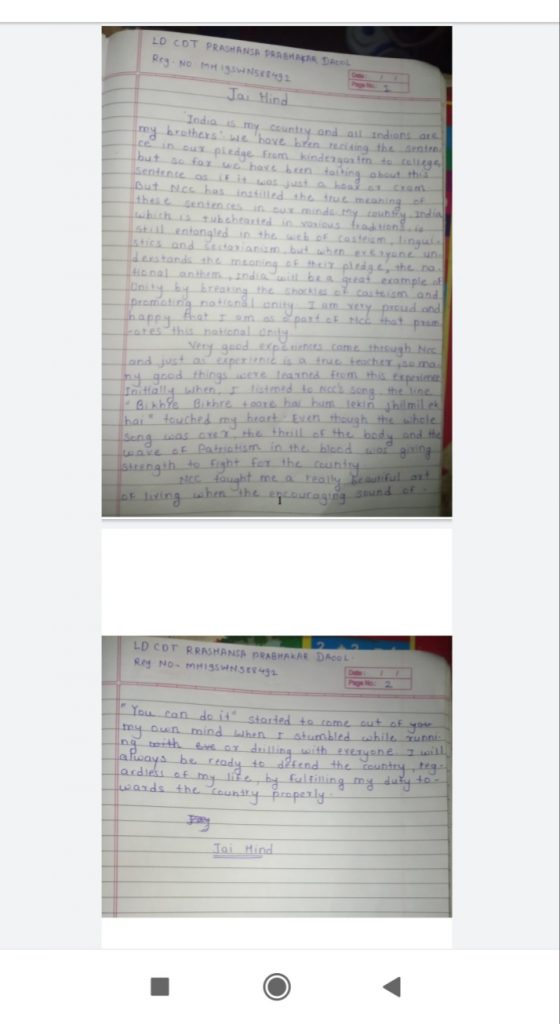 LD CDT PRASHANSA PRABHAKAR DACOL
Reg. NO. MH19SWN588492
Date: / /
Page No: 1
Jai Hind
"India is my country and all Indians are
my brothers" we have been reciting the senten-
ce in our pledge from kindergarten to college
but so far we have been talking about this
sentence as if it was just a hoax or cram
But NCC has instilled the true meaning of
these sentences in our minds. my country, India
which is tubehearted in various traditions, is
still entangled in the web of casteism, lingui-
stics and sectarianism, but when everyone un-
derstands the meaning of their pledge, the na-
tional anthem, India will be a great example of
Unity by breaking the shackles of casteism and
promoting national unity. I am very proud and
happy that I am as a part of NCC that prom
-otes this national unity.
Very good experiences come through NCC
and just as experience is a true teacher, so ma-
ny good things were learned from this experience
Initially when, I listened to NCC's song, the line
"Bikhre Bikhre taare hai hum lekin jhilmil ek
hai" touched my heart. Even though the whole
song was over, the thrill of the body and the
wave of Patriotism in the blood was giving
strength to fight for the country.
NCC taught me a really beautiful art
of living when the encouraging sound of -
1
LD CDT RRASHANSA PRABHAKAR DACOL.
Reg NO- MH19SWN588492
Date: / /
Page No: 2
"You can do it" started to come out of you
my own mind when I stumbled while runni-
ng with eve or drilling with everyone. I will
always be ready to defend the country, reg-
ardless of my life, by fulfilling my duty to-
wards the country properly.
Jai Hind